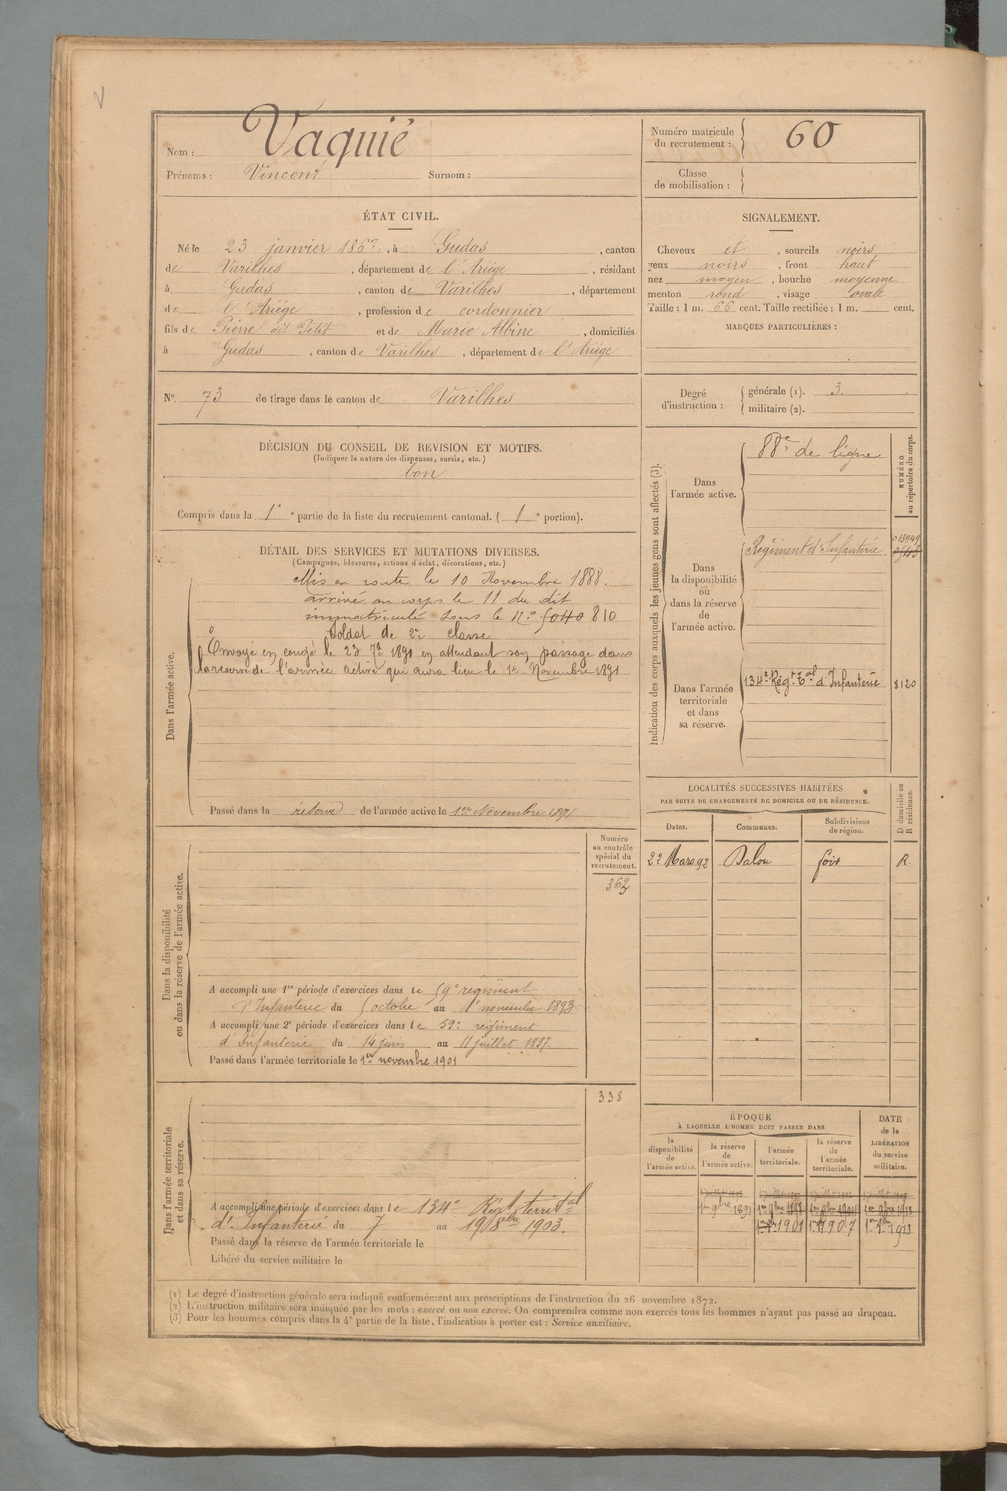 Nom : Vaquié
Prénoms : Vincent Surnom :
Numéro matricule du recrutement : 60
Classe de mobilisation :
ÉTAT CIVIL.
Né le 23 janvier 1867, à Gudas, canton
de Varilhes, département de l'Ariège, résidant
à Gudas, canton de Varilhes, département
de l'Ariège, profession de cordonnier
fils de Pierre dit Petit et de Marie Albine, domiciliés
à Gudas, canton de Varilhes, département de l'Ariège
SIGNALEMENT.
Cheveux et, sourcils noirs
yeux noirs, front haut
nez moyen, bouche moyenne
menton rond, visage ovale
Taille : 1 m. 66 cent. Taille rectifiée : 1 m. cent.
MARQUES PARTICULIÈRES :
N° 73 de tirage dans le canton de Varilhes
Degré d'instruction : générale (1). 3.
militaire (2).
DÉCISION DU CONSEIL DE REVISION ET MOTIFS.
(Indiquer la nature des dispenses, sursis, etc.)
bon
Compris dans la 1e partie de la liste du recrutement cantonal. (1e portion).
DÉTAIL DES SERVICES ET MUTATIONS DIVERSES.
(Campagnes, blessures, actions d'éclat, décorations, etc.)
Dans l'armée active.
Mis en route le 10 Novembre 1888.
arrivé au corps le 11 du dit
immatriculé sous le N° 810
Soldat de 2e classe
Envoyé en congé le 23 7bre 1891 en attendant son passage dans
la réserve de l'armée active qui aura lieu le 1er Novembre 1891
Passé dans la réserve de l'armée active le 1er Novembre 1891
Indication des corps auxquels les jeunes gens sont affectés (3).
NUMÉRO au répertoire du corps.
Dans l'armée active.
88e de ligne
Dans la disponibilité ou dans la réserve de l'armée active.
Régiment d'Infanterie
Dans l'armée territoriale et dans sa réserve.
134e Régt Tal d'Infanterie 8120
LOCALITÉS SUCCESSIVES HABITÉES
PAR SUITE DE CHANGEMENTS DE DOMICILE OU DE RÉSIDENCE.
Dates. Communes. Subdivisions de région. D domicile ou R résidence.
22 Mars 92 Dalou foix R.
Dans la disponibilité ou dans la réserve de l'armée active.
Numéro au contrôle spécial du recrutement.
362
A accompli une 1re période d'exercices dans le 59e régiment
d'Infanterie du 5 octobre au 1er novembre 1893
A accompli une 2e période d'exercices dans le 59e régiment
d'Infanterie du 14 juin au 11 juillet 1897.
Passé dans l'armée territoriale le 1er novembre 1901
Dans l'armée territoriale et dans sa réserve.
338
A accompli une période d'exercices dans le 134e Régt territal
d'Infanterie du 7 au 19 8bre 1903.
Passé dans la réserve de l'armée territoriale le
Libéré du service militaire le
ÉPOQUE
À LAQUELLE L'HOMME DOIT PASSER DANS
la disponibilité de l'armée active.
la réserve de l'armée active.
l'armée territoriale.
la réserve de l'armée territoriale.
DATE de la LIBÉRATION du service militaire.
1er 9bre 1891
(1) Le degré d'instruction générale sera indiqué conformément aux prescriptions de l'instruction du 26 novembre 1872.
(2) L'instruction militaire sera indiquée par les mots : exercé ou non exercé. On comprendra comme non exercés tous les hommes n'ayant pas passé au drapeau.
(3) Pour les hommes compris dans la 4e partie de la liste, l'indication à porter est : Service auxiliaire.